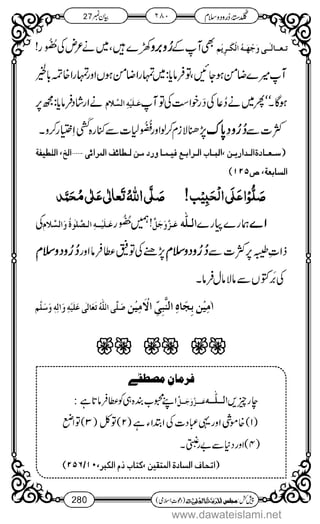 گلدستہ دُرود وسلام
۲۸۰
بیان نمبر 27
تعالٰی وَجْھَہُ الْکَرِیْم بھی آپ کے رُوبرو کھڑے ہیں، میں نے عرض کی حُضُور!
آپ میرے ضامن ہوجائیں، تو فرمایا: میں تمہارا ضامن ہوں اور تمہارا خاتمہ بالخیر
ہوگا۔‘‘ پھر میں نے دُعا کی درخواست کی تو آپ عَلَیْہِ السَّلَام نے ارشاد فرمایا: تجھ پر
کثرت سے دُرُودِ پاک پڑھنا لازم اور فُضُولیات سے کنارہ کشی اختیار کرو۔
(سعادۃ الدارین، الباب الرابع فیما ورد من لطائف المرائی ......الخ، اللطیفۃ
السابعۃ، ص ۱۲۵)
صَلُّوْا عَلَی الْحَبِیْب! صَلَّی اللہُ تَعَالٰی عَلٰی مُحَمَّد
اے ہمارے پیارے اللہ عَزَّوَجَلَّ! ہمیں حُضُور عَلَیْہِ الصَّلٰوۃُ وَالسَّلَام کی
ذاتِ طیبہ پر کثرت سے دُرُود وسلام پڑھنے کی توفیق عطا فرما اور دُرُود وسلام
کی بَرَکتوں سے مالا مال فرما۔
اٰمِیْن بِجَاہِ النَّبِیِّ الْاَمِیْن صَلَّی اللہُ تَعَالٰی عَلَیْہِ وَاٰلِہٖ وَسَلَّم
فرمانِ مصطفےٰ
چار چیزیں اللہ عَزَّوَجَلَّ اپنے محبوب بندے ہی کو عطا فرماتا ہے :
(۱) خاموشی اور یہی عبادت کی ابتدا ہے (۲) توکل (۳) تواضع
(۴) اور دنیا سے بے رغبتی۔
(اتحاف السادۃ المتقین، کتاب ذم الکبر، ۲۵۶/۱۰)
280
www.dawateislami.net